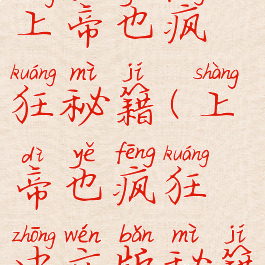 上帝也疯
kuáng mì jí shàng
狂秘籍(上
dì yě fēng kuáng
帝也疯狂
zhōng wén bǎn mì jí
中文版秘籍